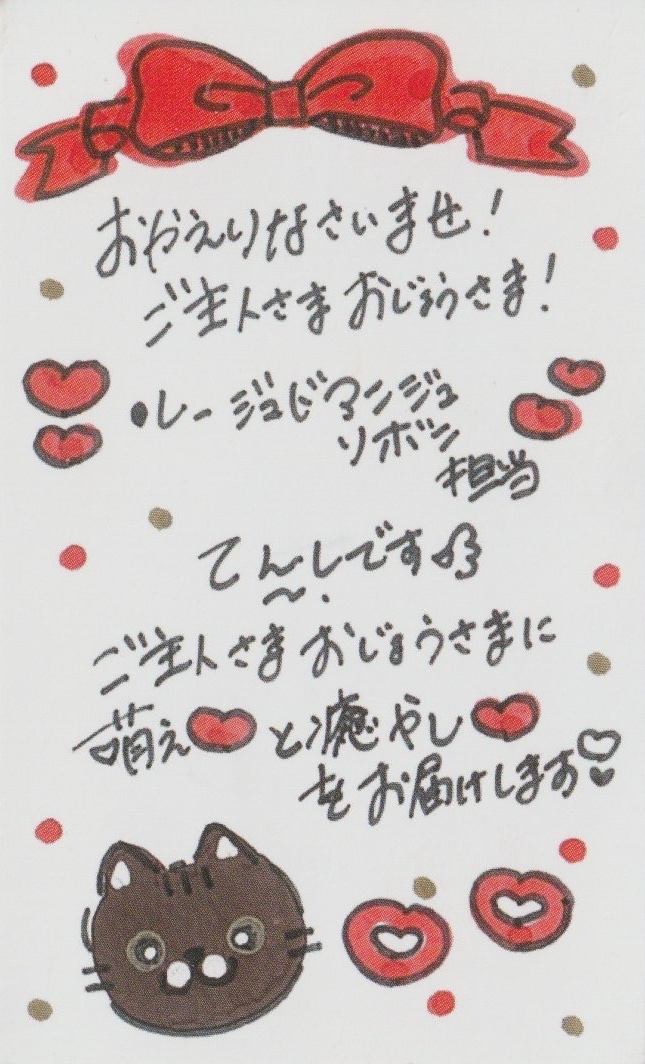 おかえりなさいませ！
ご主人さま おじょうさま！
•レージュどマンジュ
リボン
担当
てんしです♪
ご主人さま おじょうさまに
萌え♥と癒やし♥
をお届けします♡